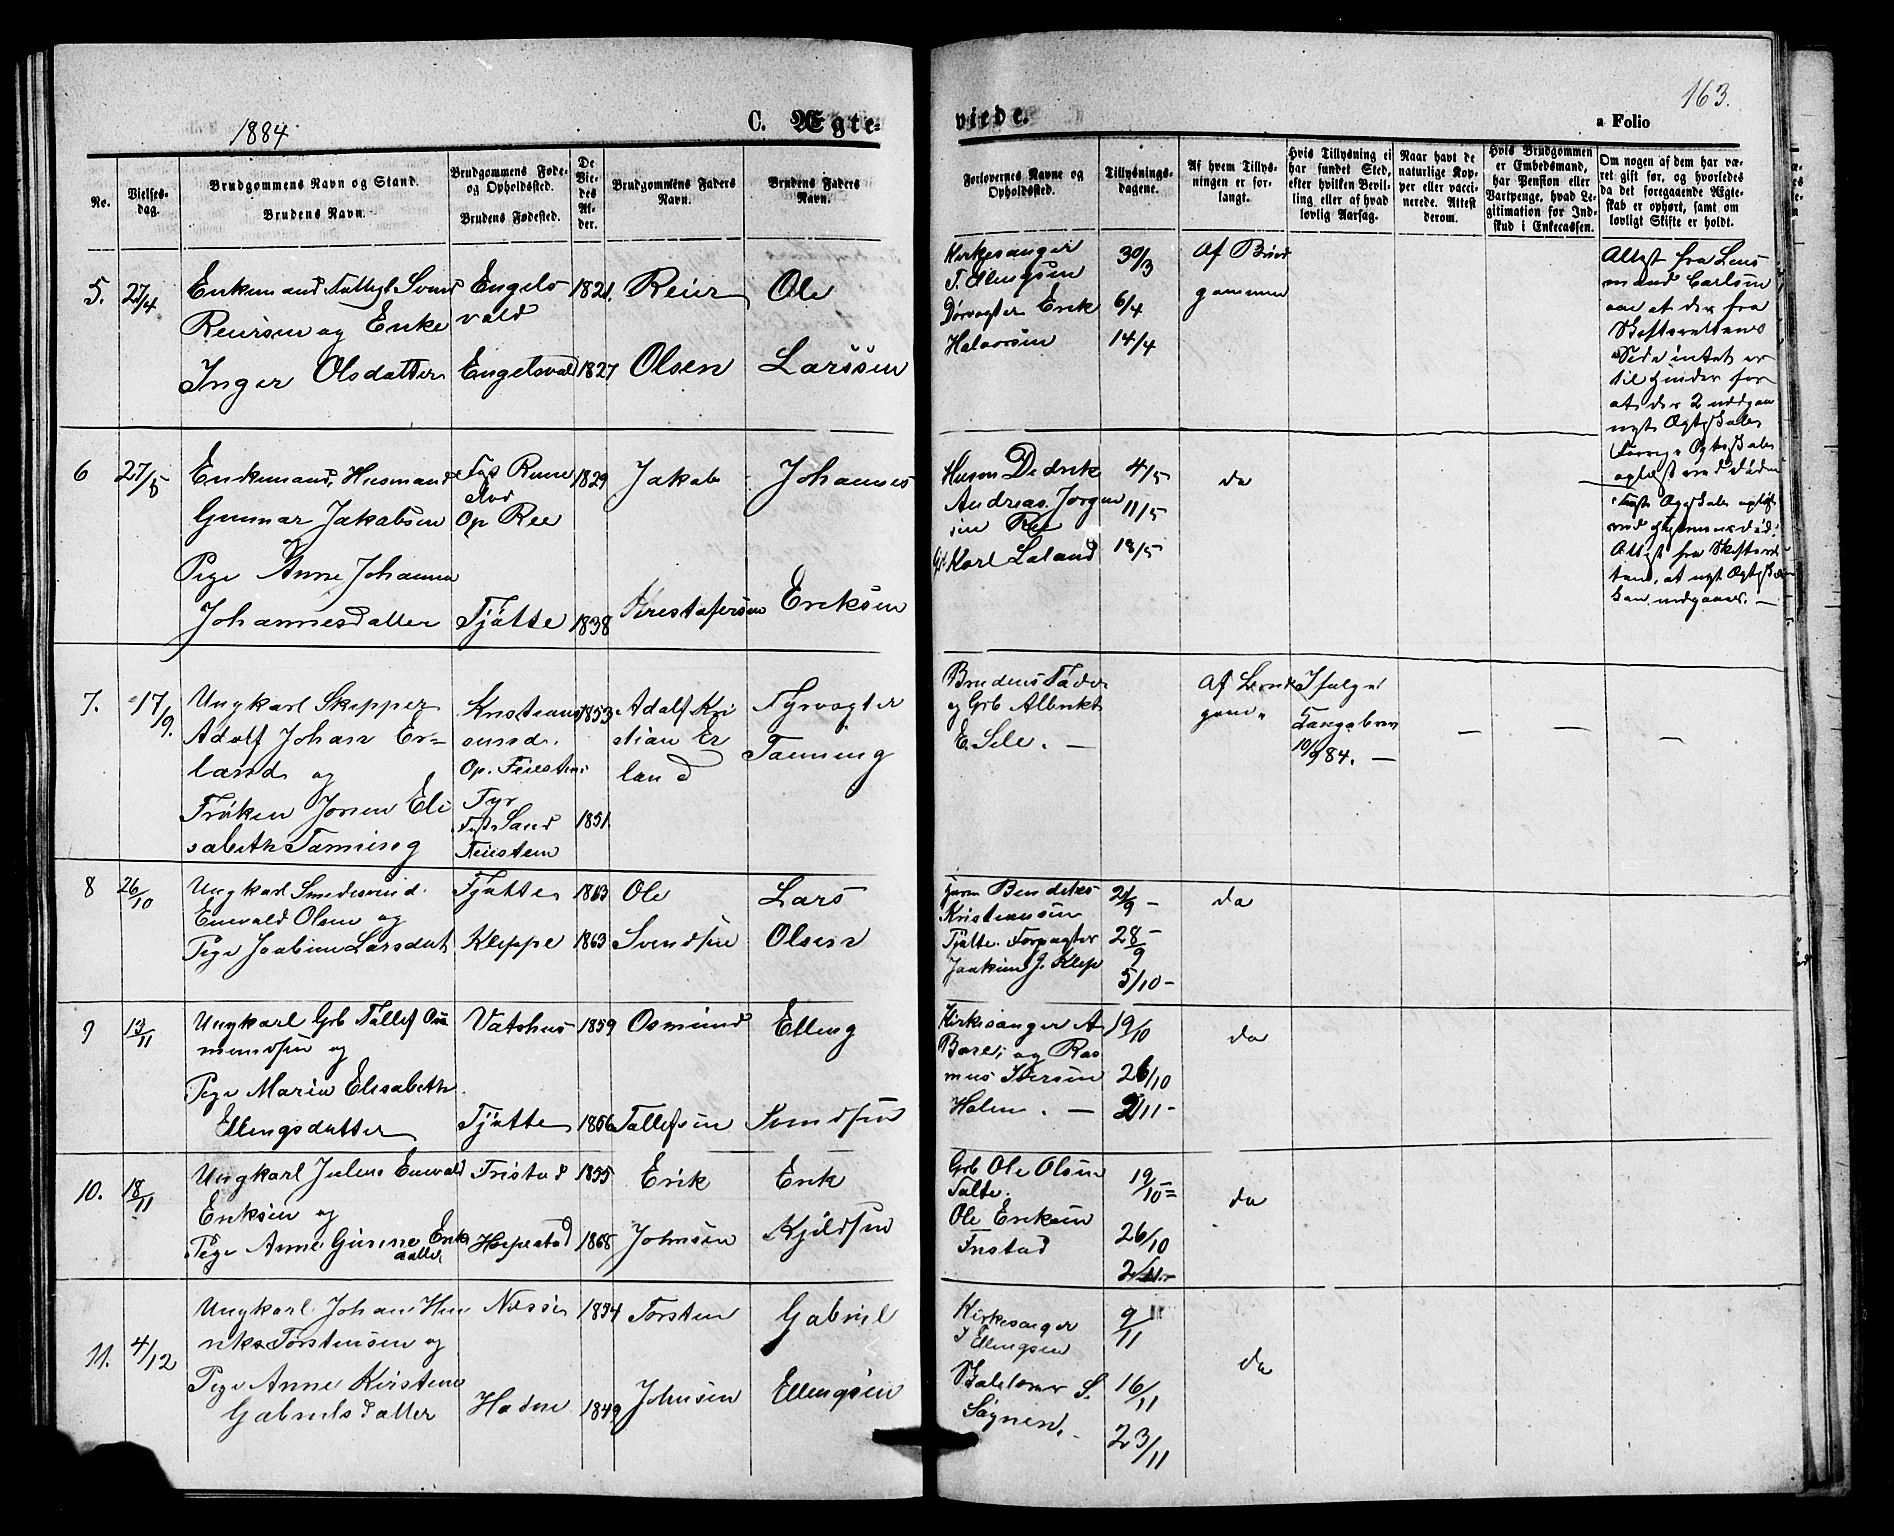 1884
C. Ægte-
viede.
163.
a Folio
No.
Vielses-
dag.
Brudgommens Navn og Stand.
Brudens Navn.
Brudgommens Føde-
og Opholdssted.
Brudens Fødested.
De
Vie-
des
Al-
der.
Brudgommens Faders
Navn.
Brudens Faders
Navn.
Forlovernes Navne og
Opholdssted.
Tillysnings-
dagene.
Af hvem Tillys-
ningen er for-
langt.
Hvis Tillysning ei
har fundet Sted,
efter hvilken Bevil-
ling eller af hvad
lovlig Aarsag.
Naar havt de
naturlige Kop-
per eller vacci-
nerede. Attest
derom.
Hvis Brudgommen
er Embedsmand,
har Pension eller
Vartpenge, hvad Le-
gitimation for Ind-
skud i Enkecassen.
Om nogen af dem har væ-
ret gift før, og hvorledes
da det foregaaende Ægte-
skab er ophørt, samt om
lovligt Skifte er holdt.
5. 27/4
Enkemand Fattigl Svend
Reiersen og Enke
Inger Olsdatter
Engels
vold
Engelsvold
1821.
1827
Reier
Olsen
Ole
Larssen
Kirkesanger
T. Ellengsen
Dørvogter Erik
Halvorsen
30/3
6/4
14/4
Af Brud
gommen
Attest fra Lens
mand Carlsen
om at der fra
Skifterettens
Side intet er
til Hinder for
at der 2 indgaa
nyt Ægteskab
Forrige Ægteskab
opløst ved Døden
6 27/5
Enkemand, Husmand
Gunnar Jakobsen
Pige Anne Johanna
Johannesdatter
Op Ree
Tjøtte
1829
1838
Jakob
Kirestofersen
Johannes
Eriksen
Husm Didrik
Andreas Jørgen
sen Ree
Gb Karl Laland
4/5
11/5
18/5
do
Attest fra Skifteret
ten, at nyt Ægteskab
kan indgaaes. —
7. 17/9.
Ungkarl Skipper
Adolf Johan Er=
land og
Frøken Jonen Eli
sabeth Tanning
Kristian
sund.
Op. Feiesten
Fyr
Fss Sand
Feiesten
1853
1851.
Adolf Kri
stian Er
land
Fyrvogter
Tanning
Brudens Fader
og Grb Albrikt
E. Sele. —
Af Brud
gom.
Ifølge
Kongebrev
10/9 84. —
—
—
—
8 26/10
Ungkarl Smedesvend
Enevald Olsen og
Pige Joakime Larsdat
Tjøtte
Kleppe
1863
1863
Ole
Svendsen
Lars
Olsen
Husm Bendiks
Kristiansen
Tjøtte. Forpagter
Joakim J. Klep
21/9 —
28/9 —
5/10 —
do
9 13/11
Ungkarl Grb Tollef Os
mundsen og
Pige Maria Elisabeth
Ellengsdatter
Vatshus
Tjøtte
1859
1866
Osmund
Tollefsen
Elleng
Svendsen
Kirkesanger A
Bore, og Ras
mus Iversen
Holen. —
19/10
26/10
2/11 —
do
10. 18/11
Ungkarl Julius Enevald
Eriksen og
Pige Anne Gurine Erik
datter
Fristad
1855
1868
Erik
Johnsen
Erik
Kjeldsen
Grb Ole Olsen
Tolte.
Ole Eriksen
Fristad
19/10 =
26/10
2/11
do
11. 4/12
Ungkarl Johan Hen
rik Torstensen og
Pige Anne Kirstene
Gabrielsdatter
Næsse
Hodne
1854
1849
Torsten
Johnsen
Gabriel
Ellengsen
Kirkesanger
T Ellengsen
Skolelærer S.
Sognen.
9/11
16/11
23/11
do